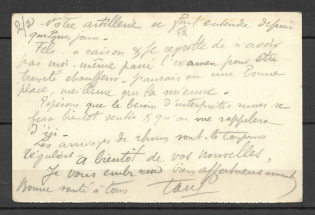 2/2 Notre artillerie se fait entendre depuis
quelques jours.
Félix a raison & je regrette de n'avoir
pas moi-même passé l'examen pour être
breveté chauffeur. J'aurais eu une bonne
place, meilleure que la mienne.
Espérons que le besoin d'interprètes russes se
fera bientôt sentir & qu'on me rappellera
d'ici.
Les arrivages de rhums sont-ils toujours
réguliers
A bientôt de vos nouvelles,
Je vous embrasse bien affectueusement
Bonne santé à tous